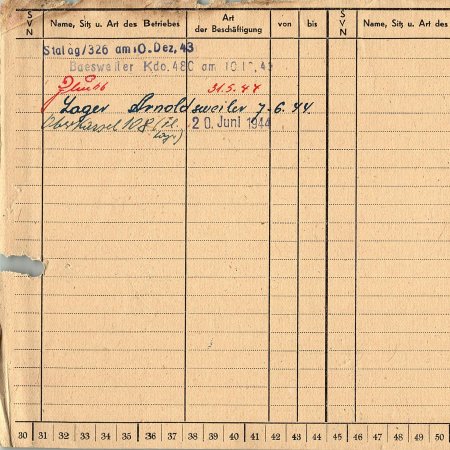 S V N Name, Sitz u. Art des Betriebes Art der Beschäftigung von bis S V N Name, Sitz u. Art des
Stalag/326 am 10. Dez, 43
Baesweiler Kdo. 480 am
31.5.44
Lager Arnoldsweiler 7.6.44.
Oberkassel 108
20. Juni 1944
30 31 32 33 34 35 36 37 38 39 40 41 42 43 44 45 46 47 48 49 50